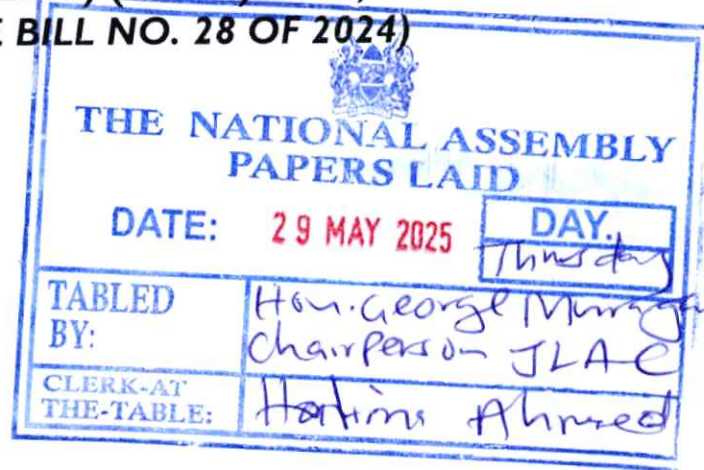 BILL NO. 28 OF 2024)
THE NATIONAL ASSEMBLY
PAPERS LAID
DATE: 29 MAY 2025 DAY.
Thursday
TABLED BY: Hon. George
Chairperson JLAC
CLERK-AT
THE-TABLE: Ahmed